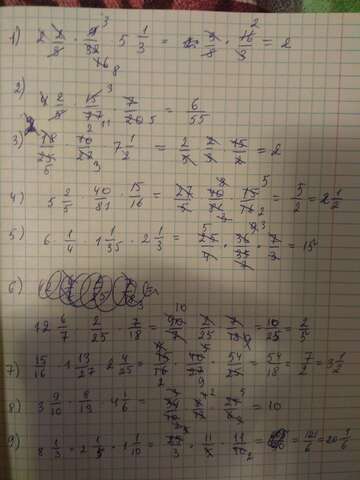 1) 2 2/3 · 9/32 · 5 1/3 = 3/8 · 16/3 = 2
2) 4 2/5 · 15/77 · 7/20 = 6/55
3) 18/25 · 10/27 · 7 1/2 = 2/5 · 2/3 · 15/2 = 2
4) 5 2/5 · 40/81 · 15/16 = 27/5 · 40/81 · 15/16 = 5/2 = 2 1/2
5) 6 1/4 · 1 1/35 · 2 1/3 = 25/4 · 36/35 · 7/3 = 15
6)
12 6/7 · 2/25 · 7/18 = 90/7 · 2/25 · 7/18 = 10/25 = 2/5
7) 15/16 · 1 13/27 · 2 4/25 = 15/16 · 40/27 · 54/25 = 54/18 = 7/2 = 3 1/2
8) 3 9/10 · 8/13 · 4 1/6 = 39/10 · 8/13 · 25/6 = 10
9) 8 1/3 · 2 1/5 · 1 1/10 = 25/3 · 11/5 · 11/10 = 121/6 = 20 1/6